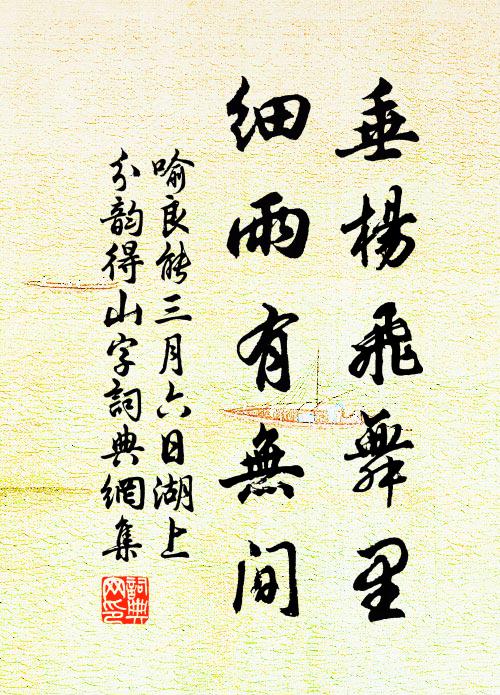 垂楊飛舞里
細雨有無間
喻良能三月六日湖上
分韵得山字詞典網集
詞典
网印